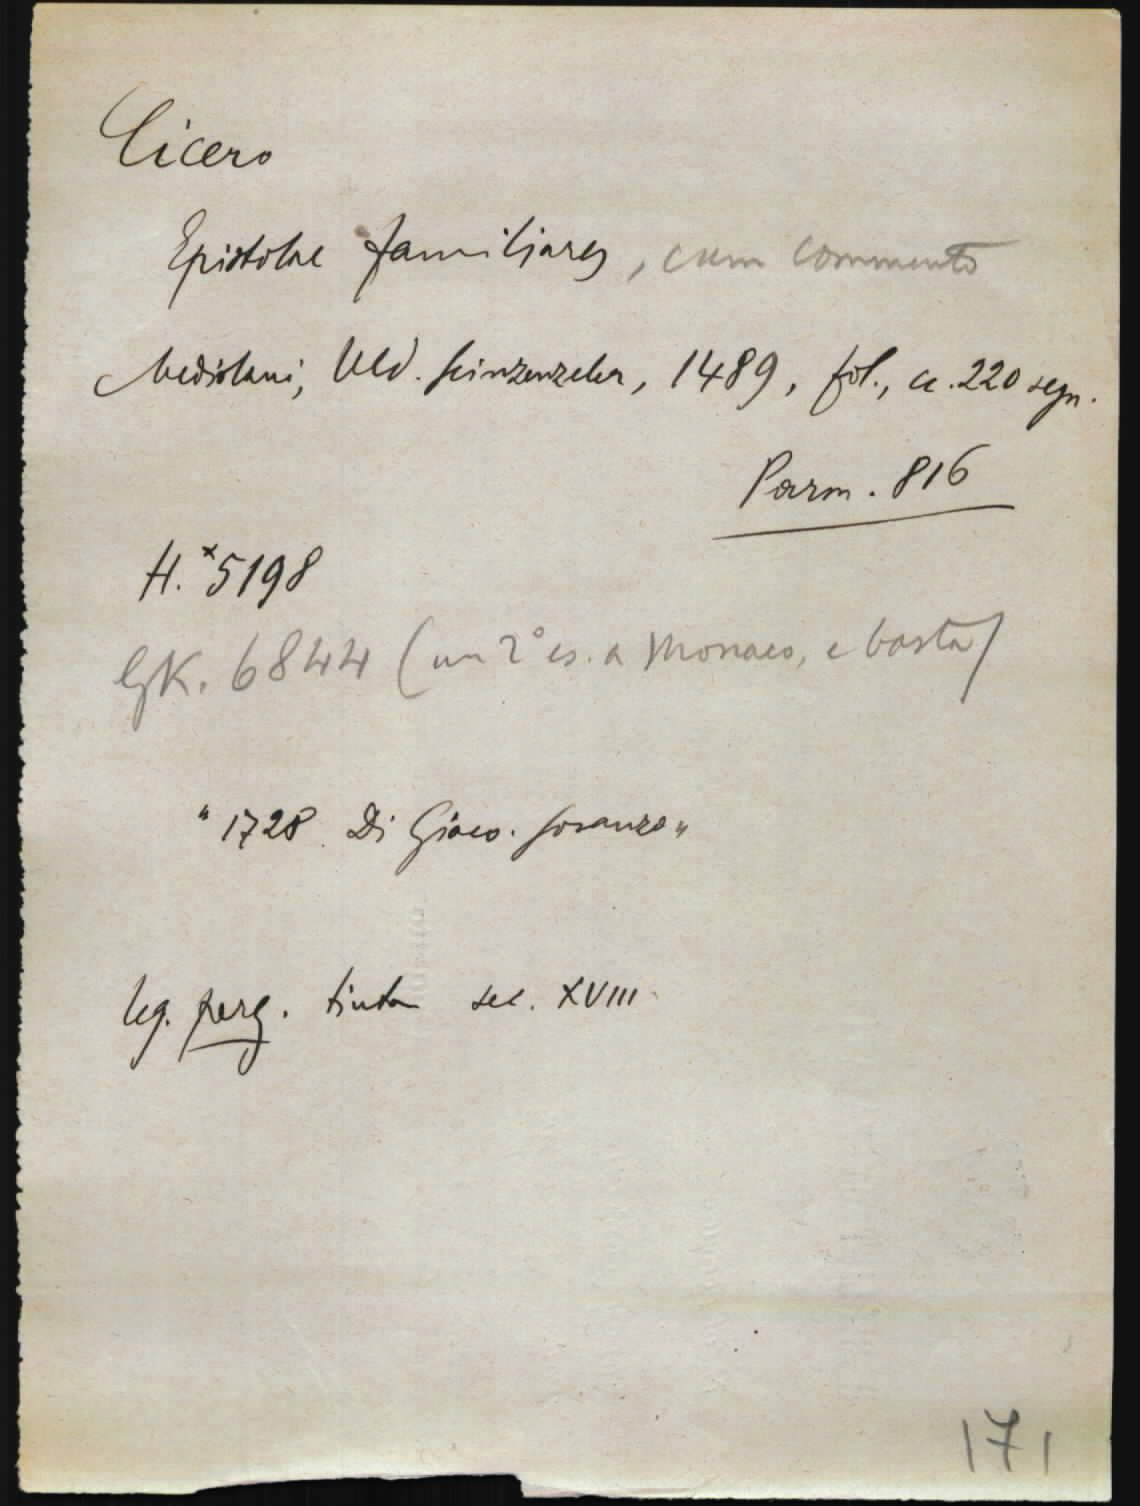 Cicero
Epistolae familiares, cum commento
Mediolani, Uld. Scinzenzeler, 1489, fol., cc. 220 segn.
Parm. 816
H. *5198
GK. 6844 (un 2° es. a Monaco, e basta)
"1728 Di Giaco. Soranzo"
leg. perg. tinta sec. XVIII
171